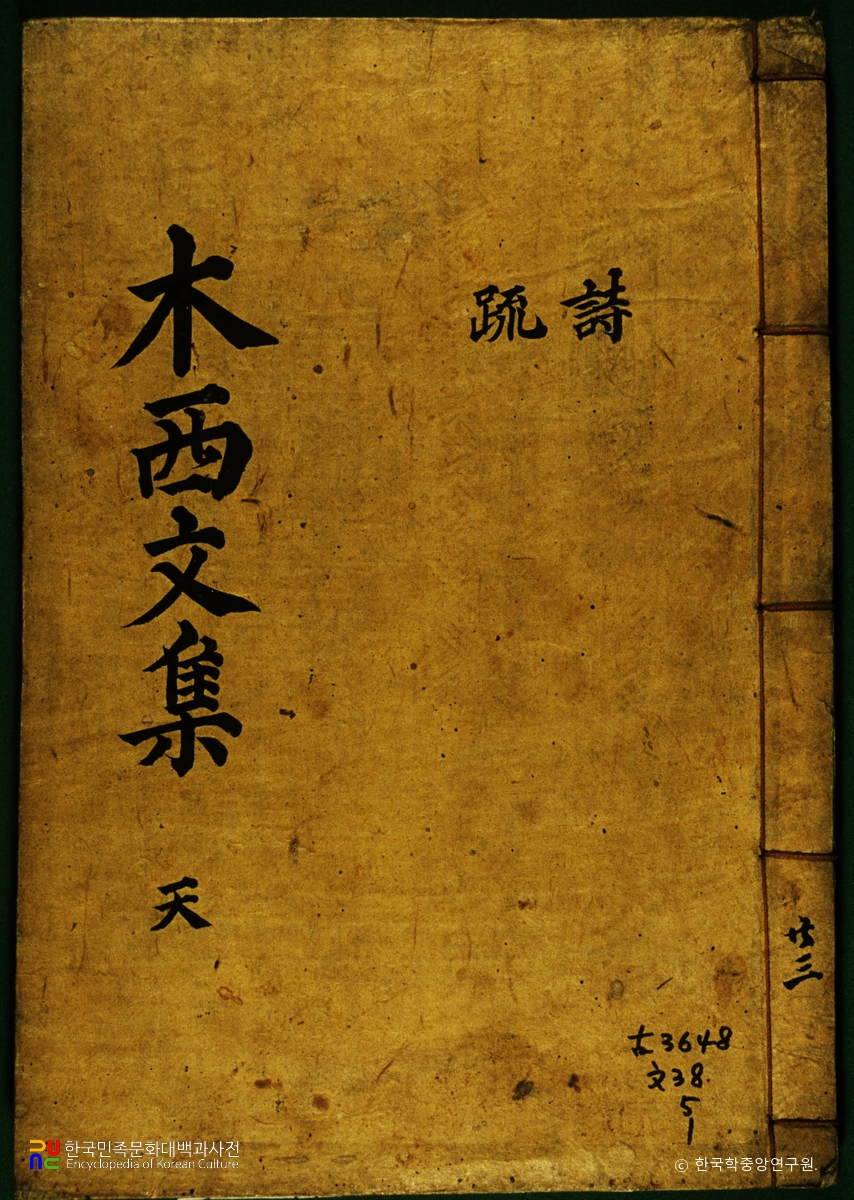 木西文集
天
詩
疏
共三
古3648
文38
5
1
한국민족문화대백과사전
Encyclopedia of Korean Culture
© 한국학중앙연구원.